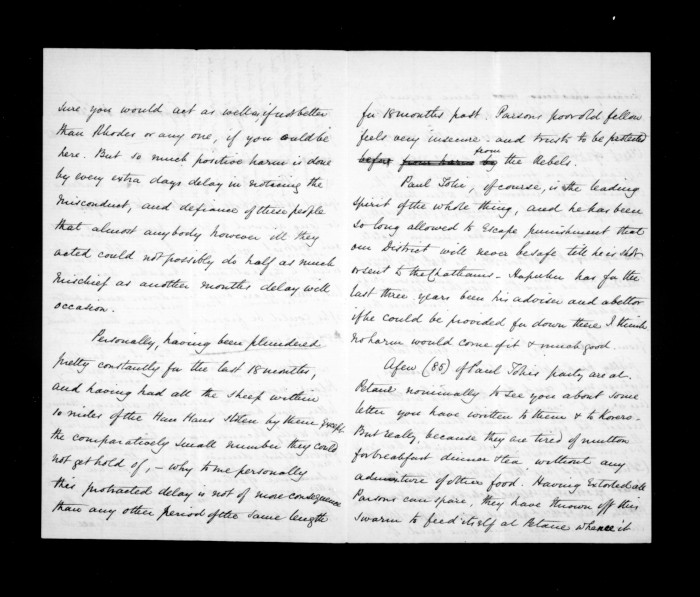 sure you would act as well as if not better
than Rhodes or any one, if you could be
here. But so much positive harm is done
by every extra days delay in noticing the
misconduct, and defiance of these people
that almost anybody however ill they
acted could not possibly do half as much
mischief as another months delay will
occasion.
Personally, having been plundered
pretty constantly for the last 18 months,
and having had all the sheep within
10 miles of the Hau Haus stolen by them except
the comparatively small number they could
not get hold of, - why to me personally
this protracted delay is not of more consequence
than any other period of the same length
for 18 months past. Parsons poor old fellow
feels very insecure - and trusts to be protected
before from harm by from the Rebels.
Paul Toki, of course, is the leading
spirit of the whole thing, and he has been
so long allowed to escape punishment that
our District will never be safe till he is shot
or sent to the Chathams - Hapuku has for the
last three years been his adviser and abettor
if he could be provided for down there I think
no harm would come of it & much good
A few (35) of Paul Tokis party are at
Petane nominally to see you about some
letter you have written to them & to Kovero.
But really, because they are tired of mutton
for breakfast dinner & tea without any
admixture of other food. Having extorted all
Parsons can spare, they have thrown off this
swarm to feed itself at Petane whence it